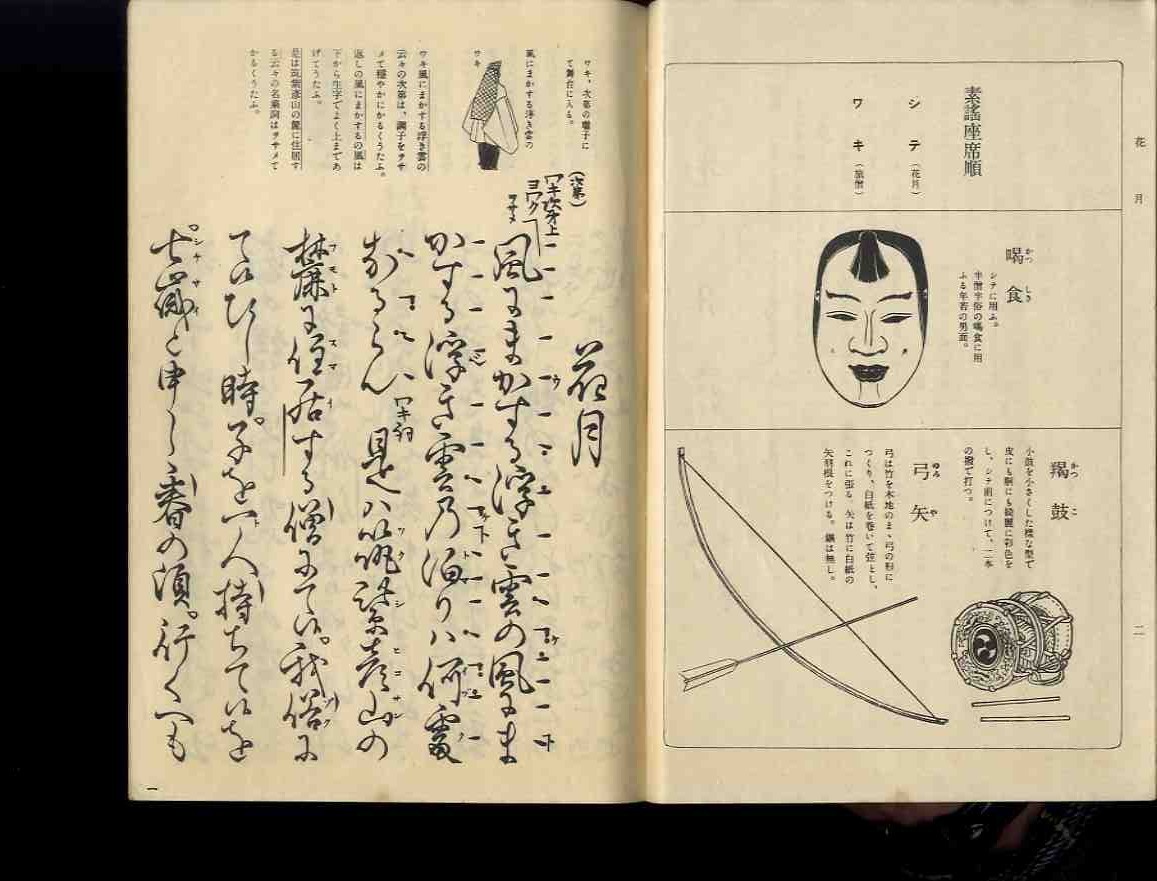 花月
二
素謡座席順
シテ(花月)
ワキ(旅僧)
喝食
かつしき
シテに用ふ。
半僧半俗の喝食に用
ふる年若の男面。
羯鼓
かつこ
小鼓を小さくした様な型で
皮にも胴にも綺麗に彩色を
し、シテ前につけて、二本
の撥で打つ。
弓矢
ゆみや
弓は竹を木地のまゝ弓の形に
つくり、白紙を巻いて弦とし、
これに張る 矢は竹に白紙の
矢羽根をつける。鏃は無し。
ワキ、次第の囃子に
て舞台に入る。
風にまかする浮き雲の
ワキ
ワキ風にまかする浮き雲の
云々の次第は、調子をヲサ
メて穏やかにかるくうたふ。
返しの風にまかするの風は
下から生字でよく上まであ
げてうたふ。
是は筑紫彦山の麓に住居す
る云々の名乗詞はヲサメて
かるくうたふ。
花月
(次第)
ワキ次第上
ヨワク
風にまかする浮き雲の風にま
かする浮き雲乃泊りハ何處
なるらん
ワキ詞
是ハ筑紫彦山の
麓に住居する僧にて候。我俗に
て候ひし時。子を一人持ちて候を
七歳と申しゝ春の頃。行くへも
一